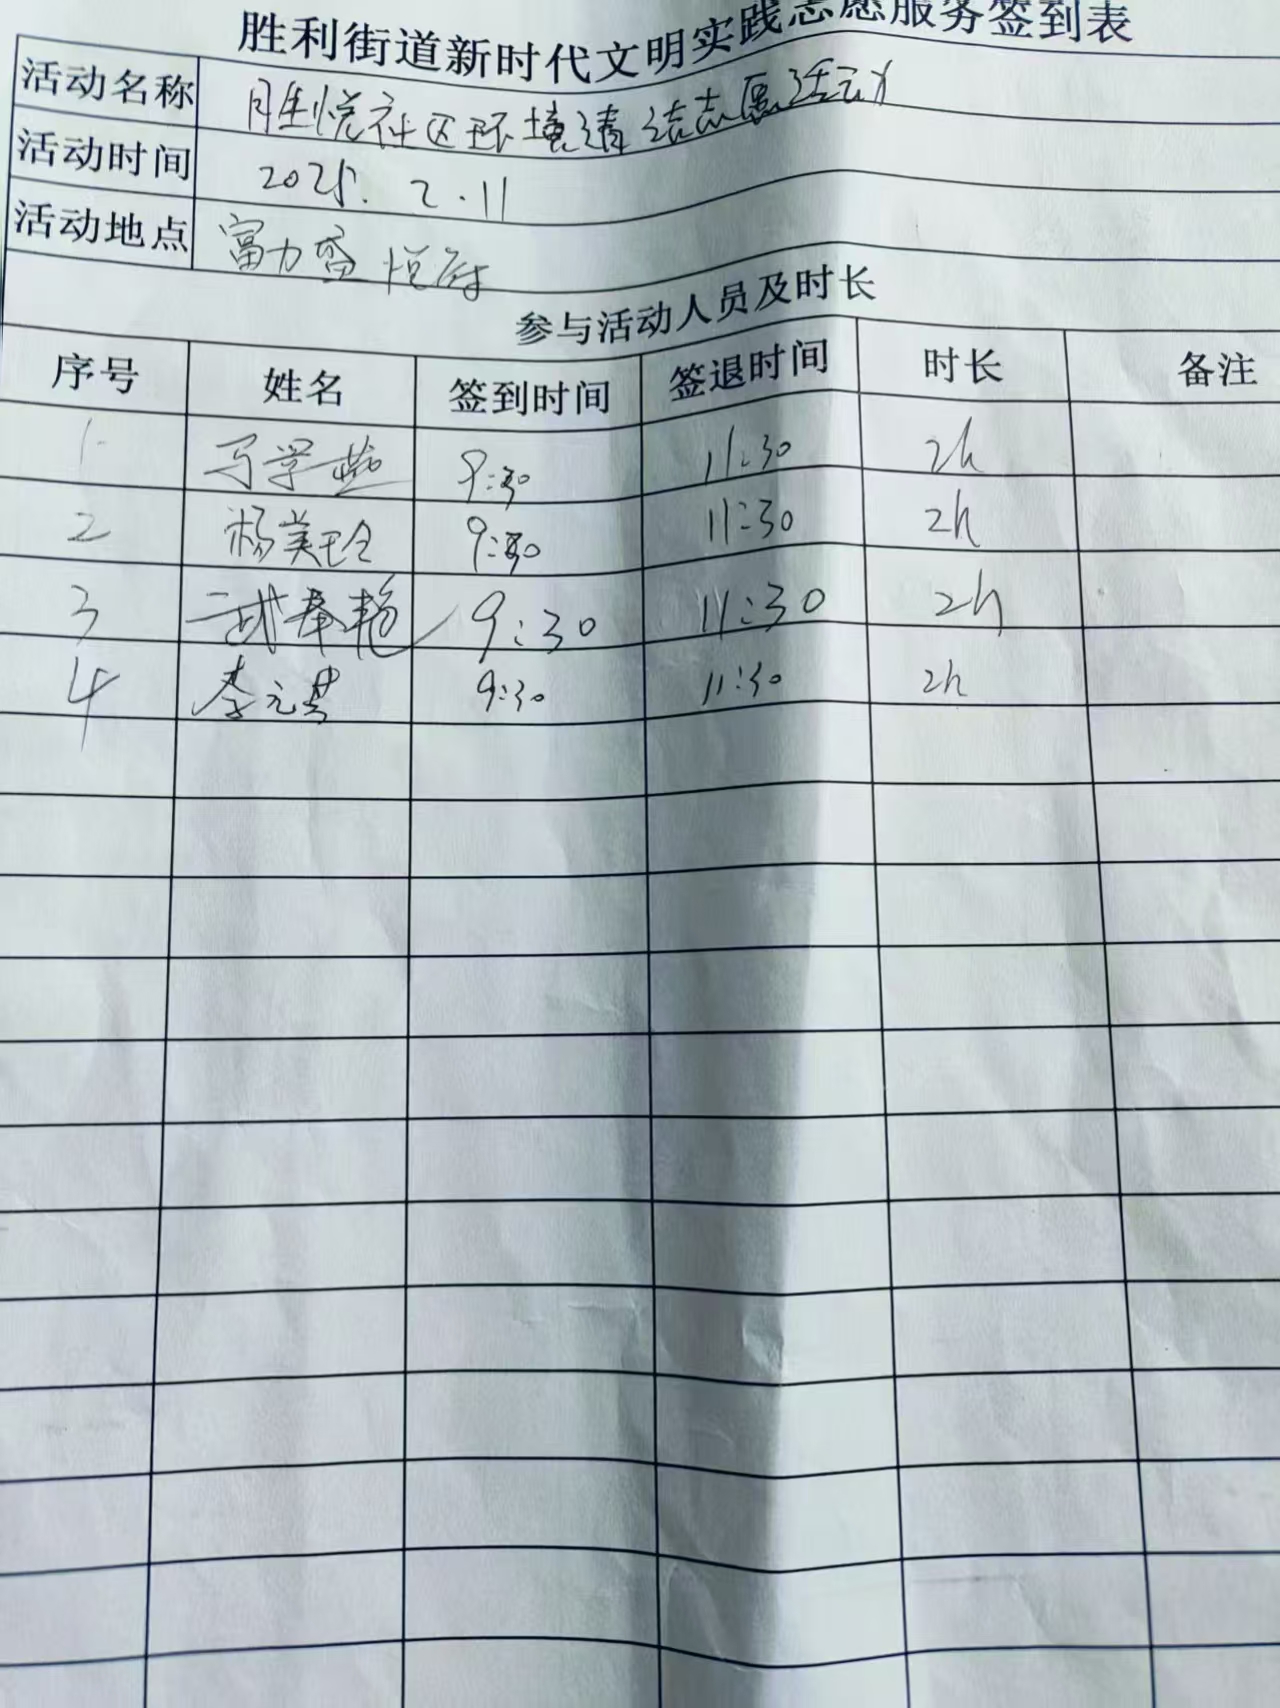 胜利街道新时代文明实践志愿服务签到表
活动名称 胜悦社区环境清洁志愿活动
活动时间 2025.2.11
活动地点 富力盛悦府
参与活动人员及时长
序号 姓名 签到时间 签退时间 时长 备注
1 马学燕 9:30 11:30 2h
2 杨美玲 9:30 11:30 2h
3 武春艳 9:30 11:30 2h
4 李元 9:30 11:30 2h